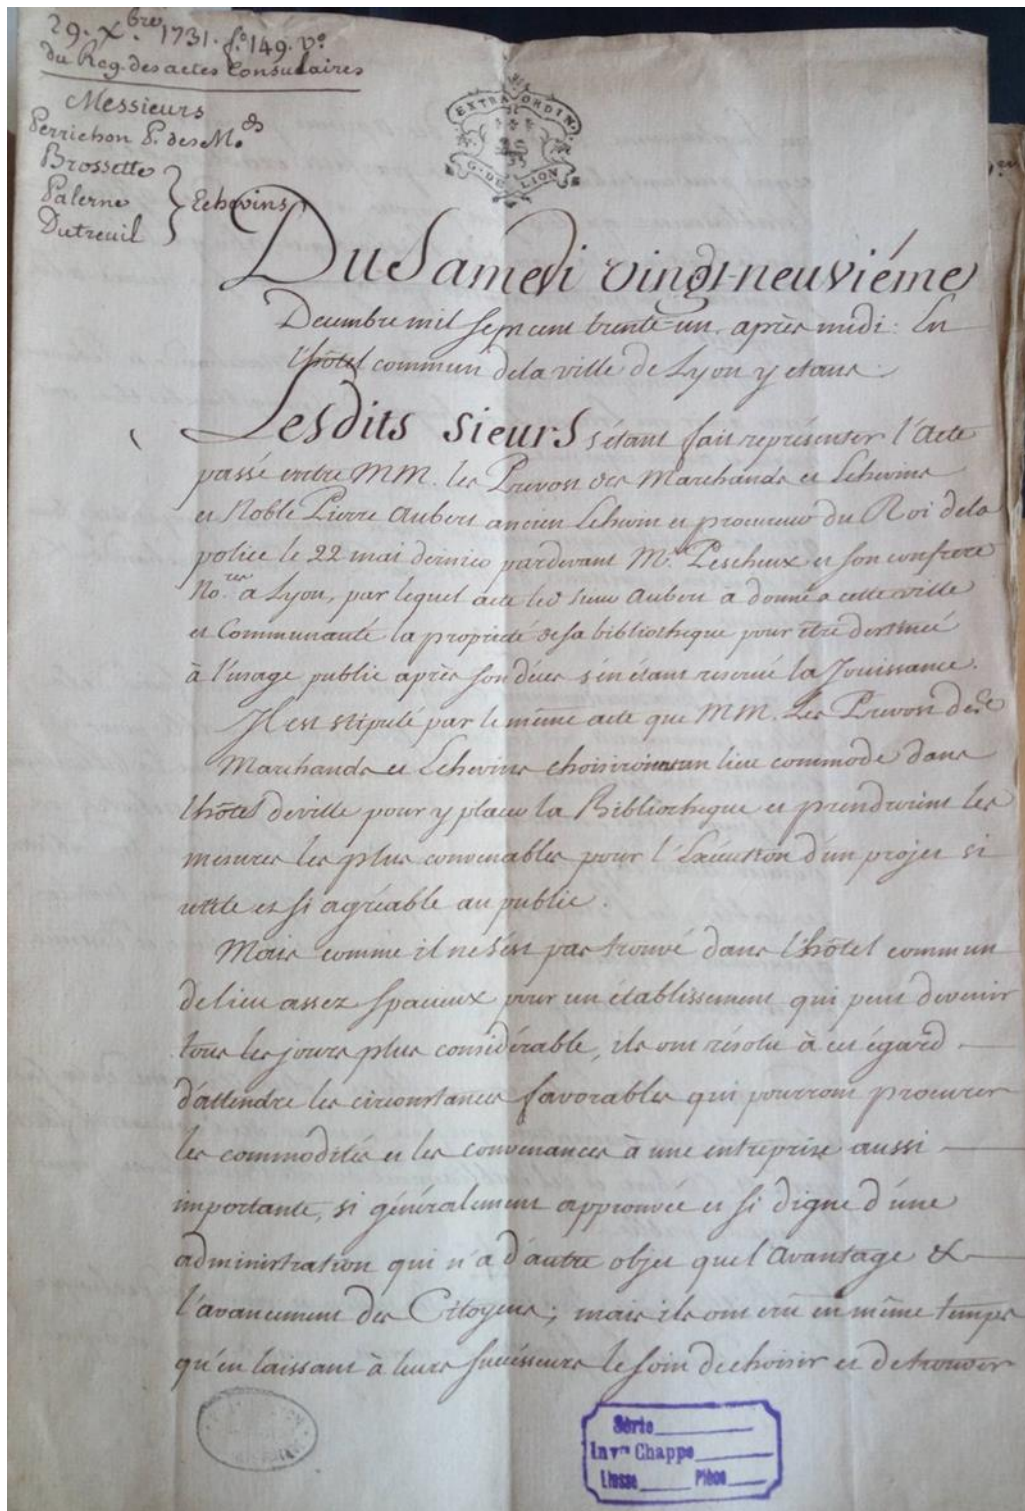 29. Xbre. 1731. f.o 149. V.o
du Reg. des actes Consulaires
Messieurs
Perrichon P. des M.ds
Brossette
Palerne
Dutreuil
Echevins
EXTRAORDIN.
G. DE LION
Du Samedi vingt-neuviéme
Decembre mil sept cent trente-un. après midi: En
l'hôtel commun de la ville de Lyon y etant.
Lesdits sieurs s'étant fait représenter l'Acte
passé entre MM. les Prevost des Marchands et Echevins
et Noble Pierre Aubert ancien Echevin et procureur du Roi de la
police le 22 mai dernier pardevant M.e Pescheux et son confrere
No.res a Lyon, par lequel acte led. sieur Aubert a donné a cette ville
et Communauté la propriété de sa bibliotheque pour être destinée
à l'usage public après son décès s'en étant reservé la Jouissance.
Il est stipulé par le même acte que MM. Les Prevost des
Marchands et Echevins choisiroient un lieu commode dans
l'hôtel de ville pour y placer la Bibliotheque et prendroient les
mesures les plus convenables pour l'Exécution d'un projet si
utile et si agréable au public.
Mais comme il ne s'est pas trouvé dans l'hôtel commun
de lieu assez spacieux pour un établissement qui peut devenir
tous les jours plus considérable, ils ont résolu à cet égard
d'attendre les circonstances favorables qui pourront procurer
les commodités et les convenances à une entreprise aussi
importante, si généralement approuvée et si digne d'une
administration qui n'a d'autre objet que l'Avantage &
l'avancement des Citoyens; mais ils ont crû en même temps
qu'en laissant à leurs successeurs le soin de choisir et de trouver
Série
Invre Chappe
Liasse Pièce